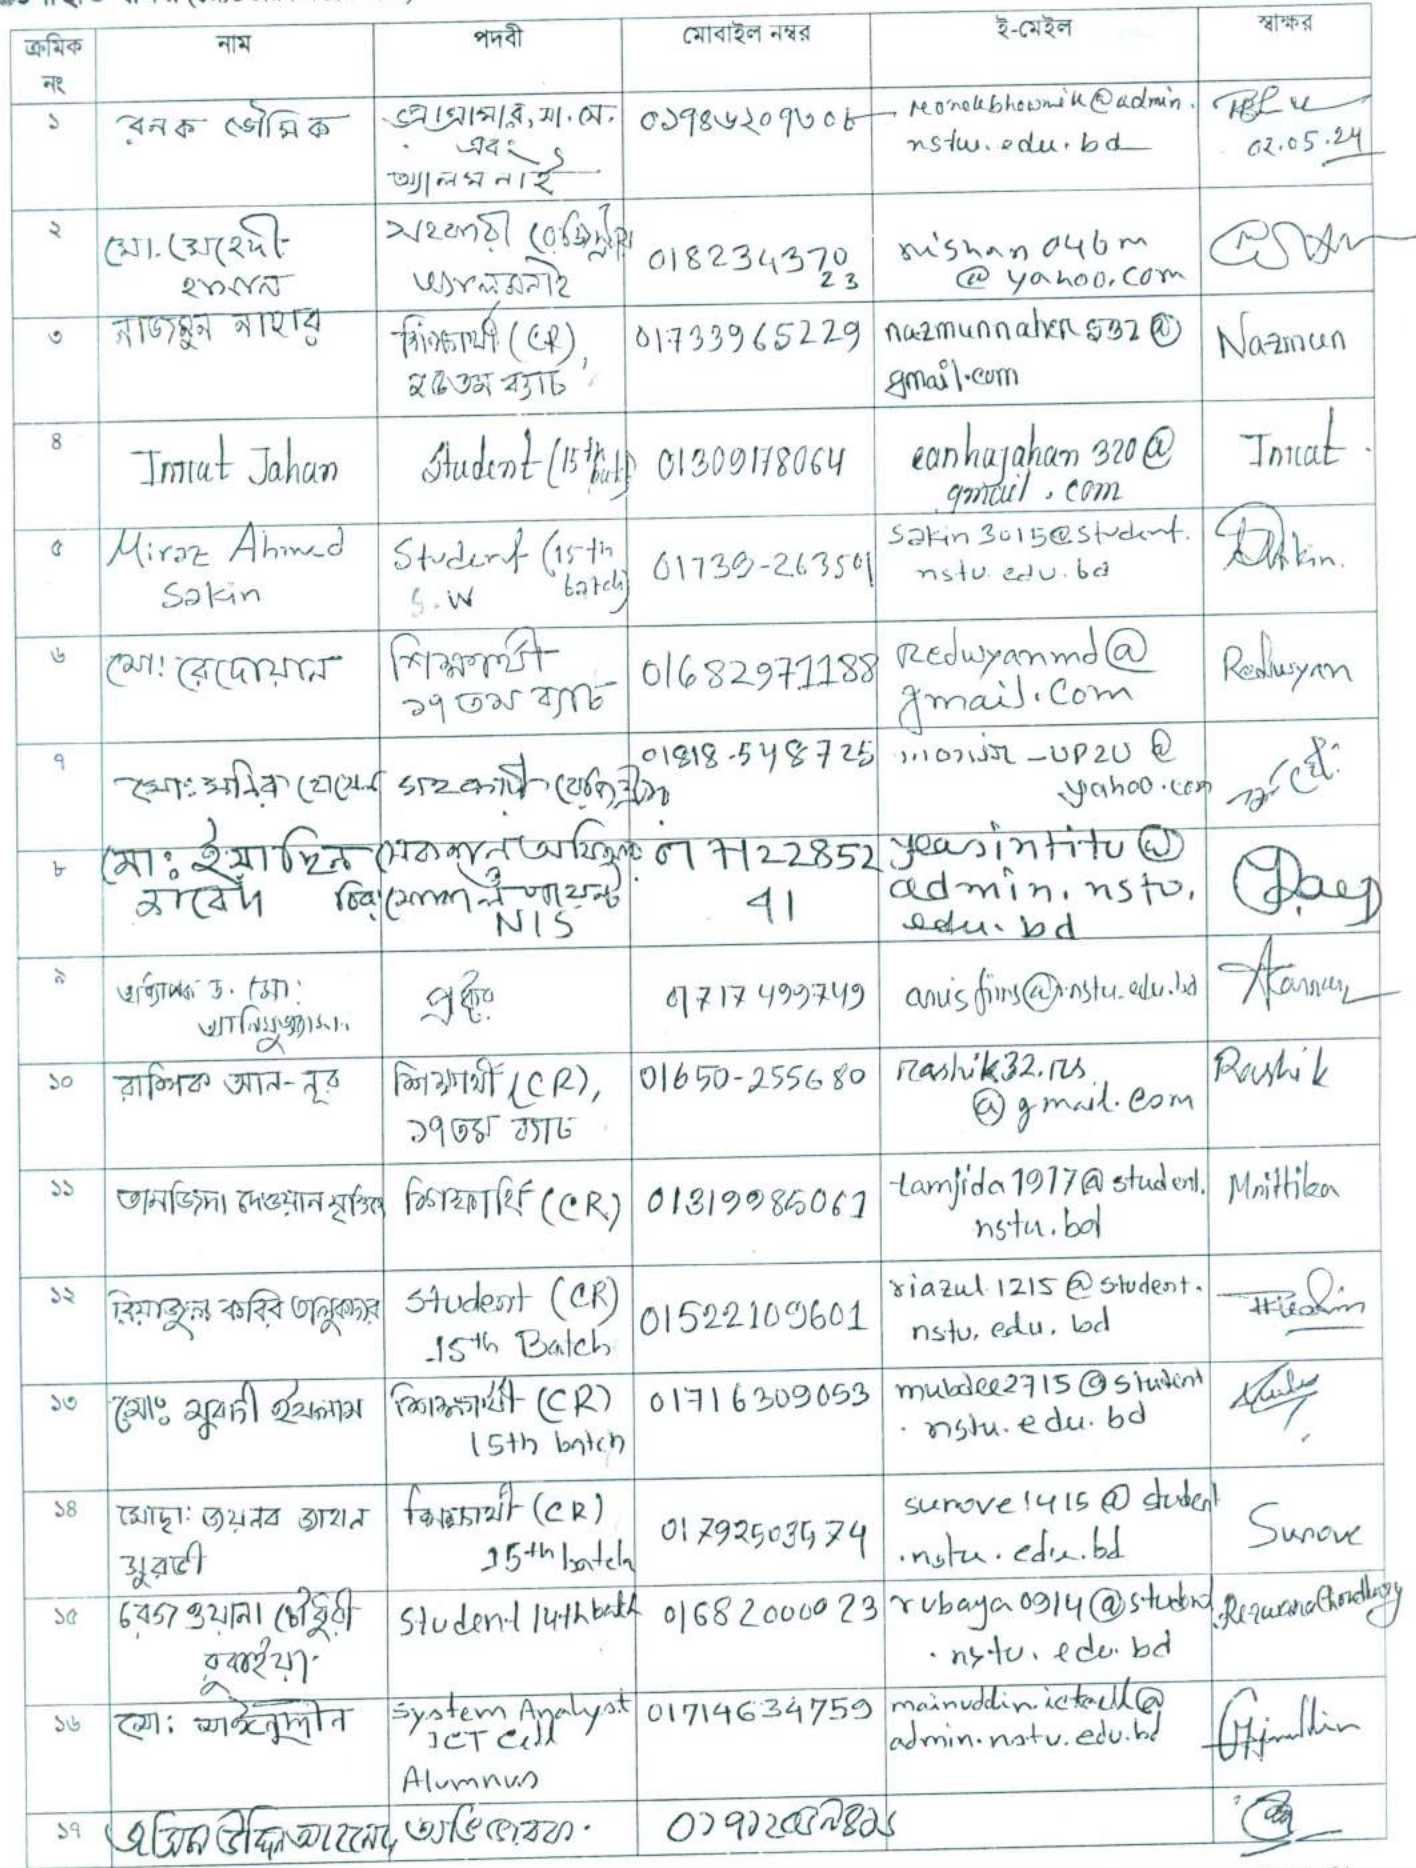 ক্রমিক নং নাম পদবী মোবাইল নম্বর ই-মেইল স্বাক্ষর
১ রনক ভৌমিক প্রোগ্রামার, সা. সে. এবং অ্যালামনাই @admin.nstu.edu.bd 02.05.24
২ মো. মেহেদী হাসান সহকারী রেজিস্ট্রার অ্যালামনাই 01823437023 nishan046m@yahoo.com
৩ নাজমুন নাহার শিক্ষার্থী (CR), ব্যাচ 01733965229 nazmunnaher532@gmail.com Nazmun
৪ Jahan Student (15th) 01309178064 320@gmail.com
৫ Miraz Ahmed Sakin Student (15-th batch) S.W 01739-263501 sakin3015@student.nstu.edu.bd
৬ মো: রেদোয়ান শিক্ষার্থী ১৭তম ব্যাচ 01682971188 Redwyanmd@gmail.com Redwyan
৭ মো: মনির হোসেন সহকারী রেজিস্ট্রার 01818-548725 @yahoo.com
৮ মো: ইয়াছিন NIS 0171228524১ yeasintitu@admin.nstu.edu.bd
৯ অধ্যাপক ড. মো: আনিসুজ্জামান প্রক্টর 01717499749
১০ রাশিক আন-নূর শিক্ষার্থী (CR), ১৭তম ব্যাচ 01650-255680 rashik32.rs@gmail.com Rashik
১১ তামজিদা দেওয়ান শিক্ষার্থী (CR) tamjida1917@student.nstu.bd Mrittika
১২ রিয়াজুল করিব তালুকদার Student (CR) 15th Batch 01522109601 riazul1215@student.nstu.edu.bd
১৩ মোঃ মুবদী ইসলাম শিক্ষার্থী (CR) 15th batch 01716309053 mubdee2715@student.nstu.edu.bd
১৪ মোছা: জয়নব জাহান সুরভী শিক্ষার্থী (CR) 15th batch 01792503574 surove1415@student.nstu.edu.bd Surove
১৫ রেজওয়ানা চৌধুরী রুবাইয়া Student 14th batch 01682000023 rubaya0914@student.nstu.edu.bd Rezwana Chowdhury
১৬ মো: মাইনুদ্দীন System Analyst ICT Cell Alumnus 01714634759 mainuddin.ictcell@admin.nstu.edu.bd
১৭ আহমেদ অভিভাবক